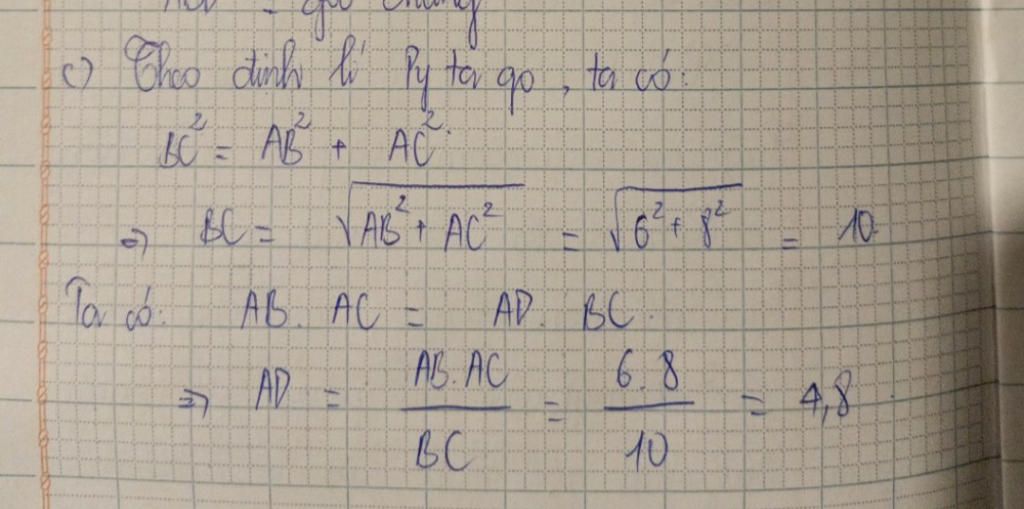 góc chung
c) Theo định lí Py ta go, ta có:
BC² = AB² + AC².
⇒ BC = √(AB² + AC²) = √(6² + 8²) = 10.
Ta có: AB. AC = AD. BC.
⇒ AD = AB.AC / BC = 6.8 / 10 = 4,8